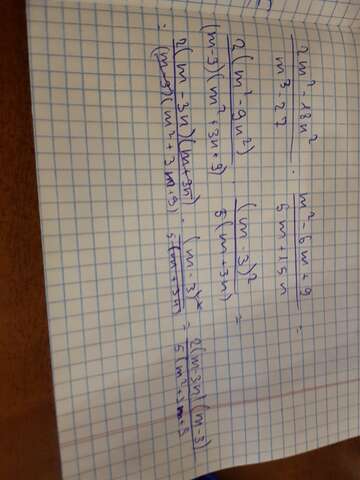 (2m² - 18n²)/(m³ - 27) · (m² - 6m + 9)/(5m + 15n) =
(2(m² - 9n²))/((m-3)(m² + 3m + 9)) · ((m - 3)²)/(5(m+3n)) =
= (2(m - 3n)(m+3n))/((m-3)(m² + 3m+9)) · ((m - 3)²)/(5(m+3n)) = (2(m-3n)(m-3))/(5(m²+3m+9